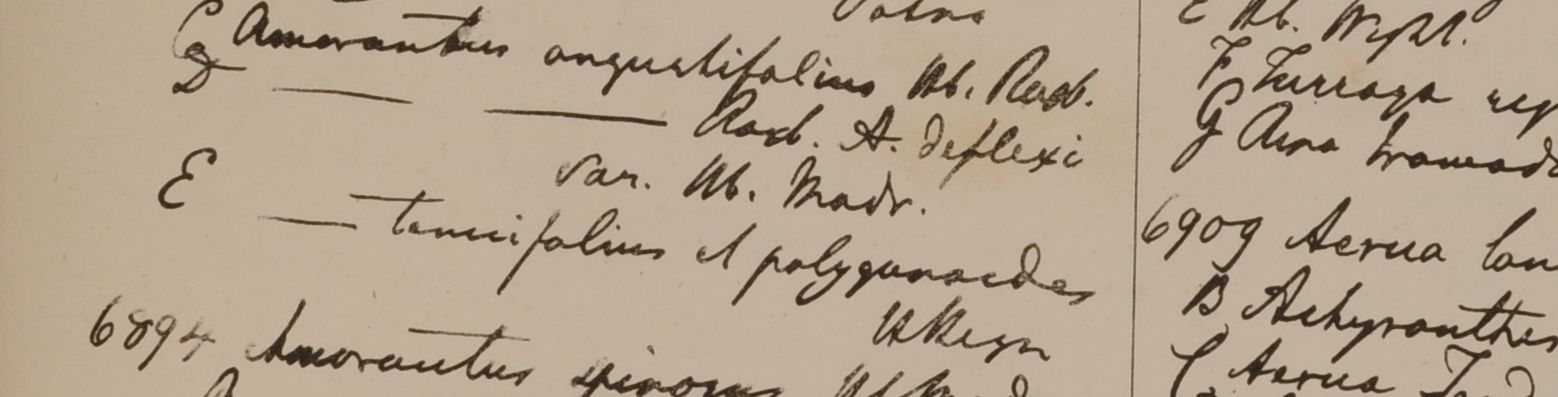 Patna
C Amarantus angustifolius Hb. Roxb.
D — — Roxb. A. deflexi
var. Hb. Madr.
E — tenuifolius et polygonoides
H Heyn
6894 Amarantus spinosus Hb Mad
E Hb. Wight.
F Turraga
G Aira
6909 Aerua lan
B Achyranthes
C Aerua